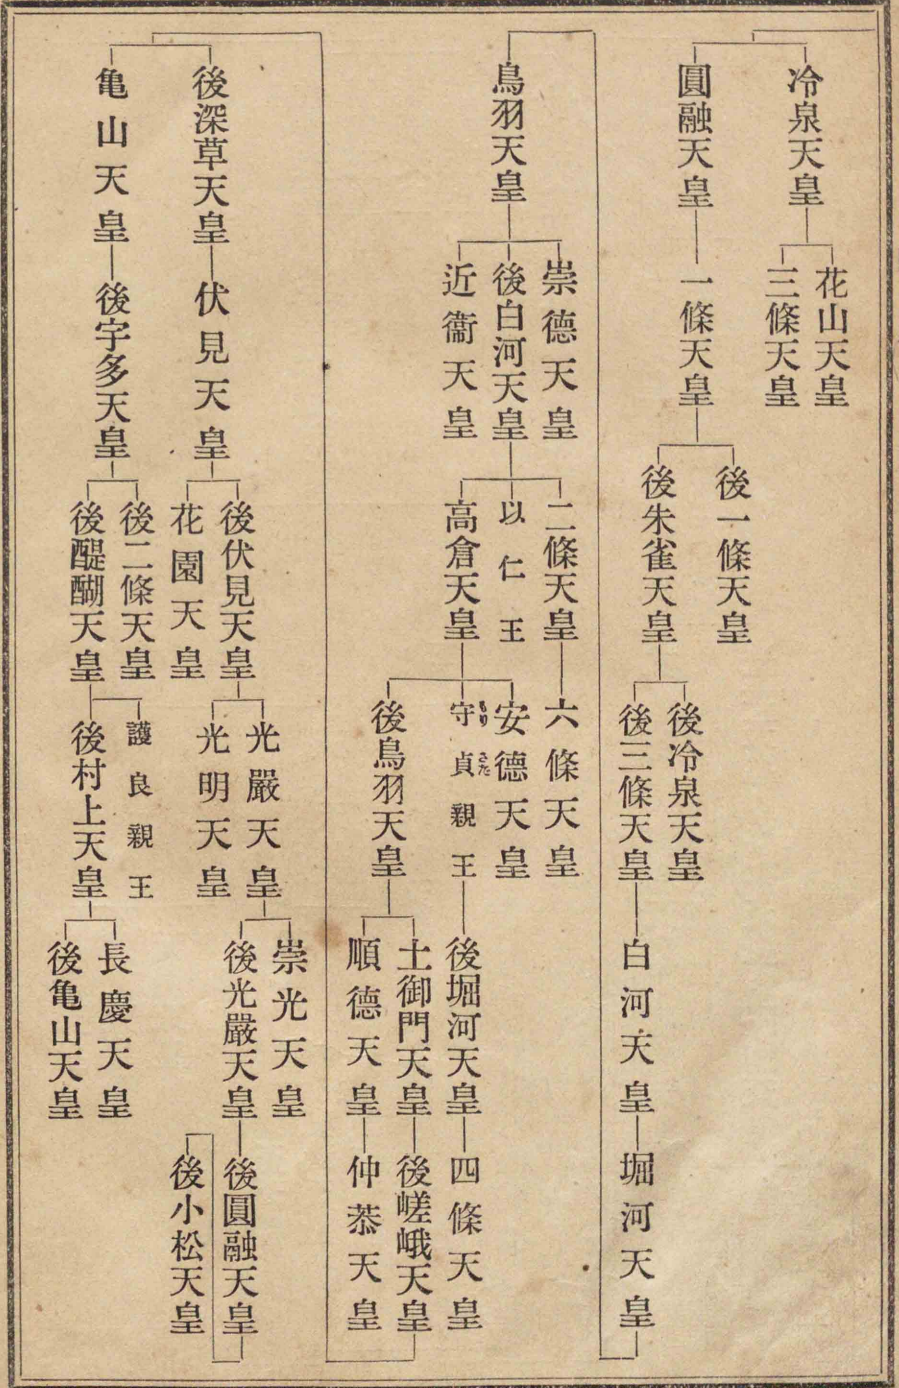 冷泉天皇
花山天皇
三條天皇
圓融天皇
一條天皇
後一條天皇
後朱雀天皇
後冷泉天皇
後三條天皇
白河天皇
堀河天皇
鳥羽天皇
崇德天皇
後白河天皇
近衞天皇
二條天皇
六條天皇
以仁王
高倉天皇
安德天皇
守貞親王
もり さだ
後堀河天皇
四條天皇
後鳥羽天皇
土御門天皇
後嵯峨天皇
順德天皇
仲恭天皇
後深草天皇
伏見天皇
後伏見天皇
花園天皇
光嚴天皇
光明天皇
崇光天皇
後光嚴天皇
後圓融天皇
後小松天皇
亀山天皇
後宇多天皇
後二條天皇
後醍醐天皇
護良親王
後村上天皇
長慶天皇
後亀山天皇